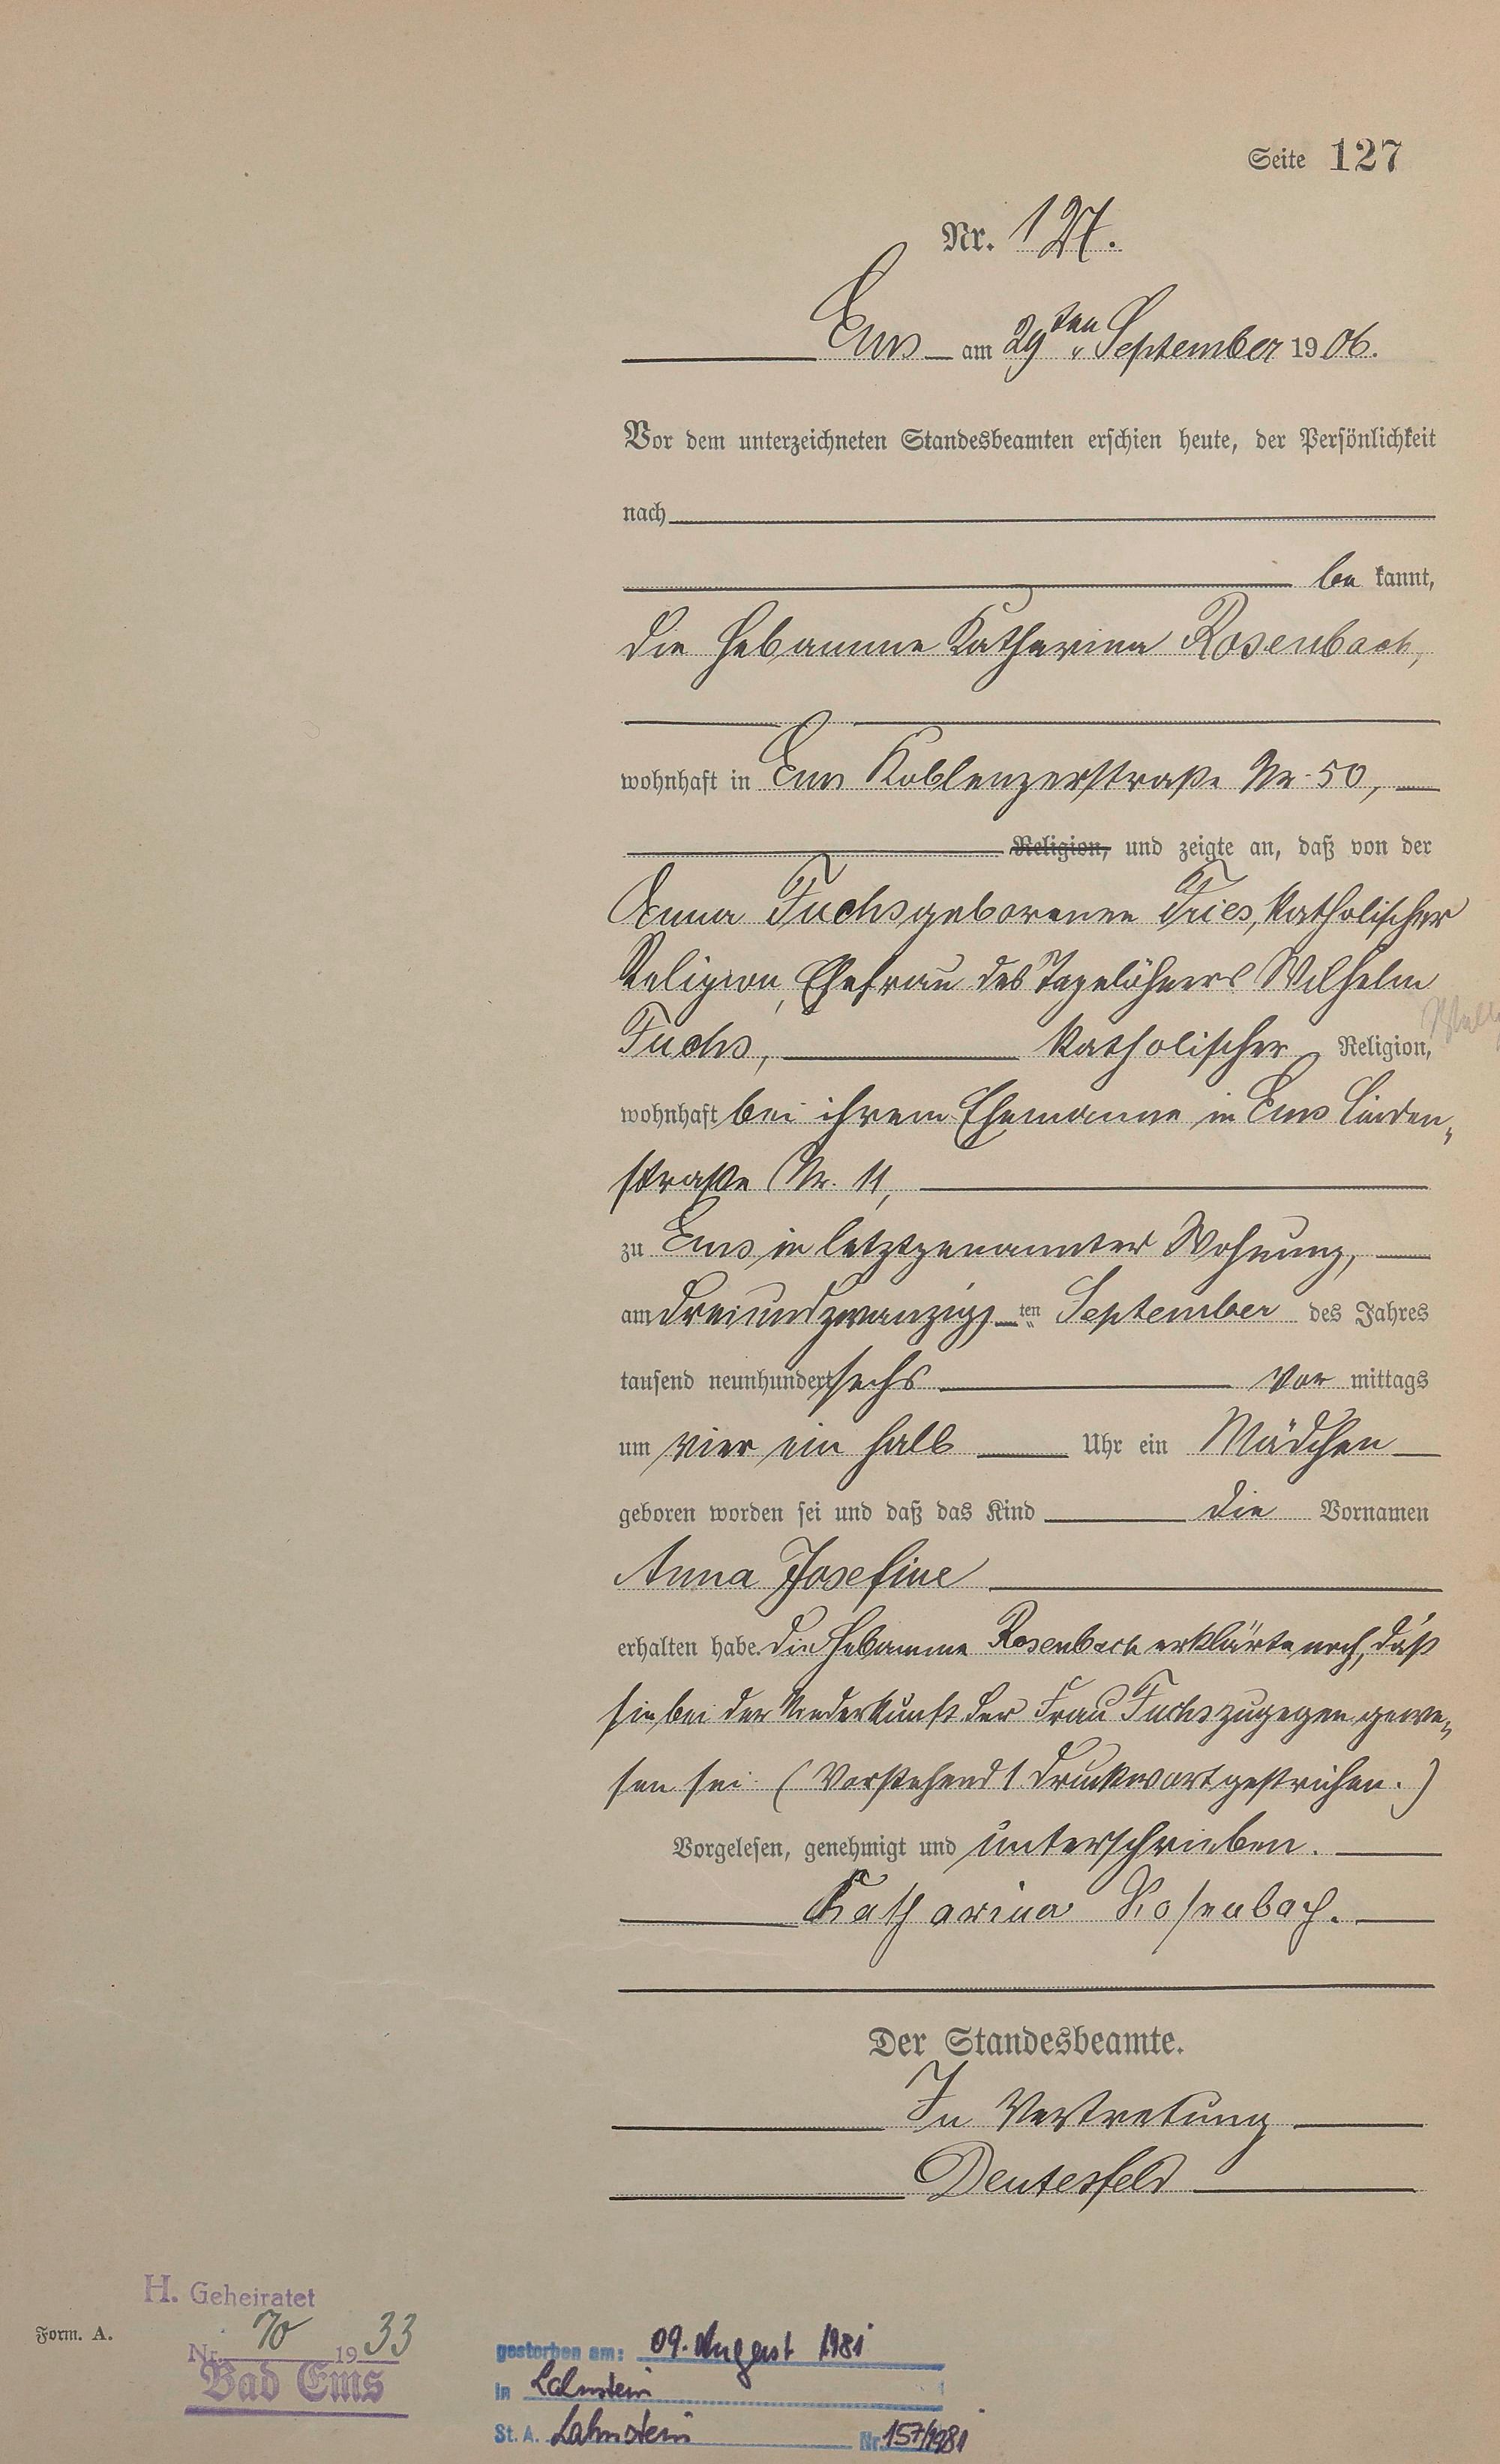 Seite 127
Nr. 127.
Ems am 29ten September 1906.
Vor dem unterzeichneten Standesbeamten erschien heute, der Persönlichkeit
nach
be kannt,
die Hebamme Katharina Rosenbach,
wohnhaft in Ems Koblenzerstraße Nr. 50,
Religion, und zeigte an, daß von der
Anna Fuchs geborenen Fries, katholischer
Religion, Ehefrau des Tagelöhners Wilhelm
Fuchs, katholischer Religion,
wohnhaft bei ihrem Ehemanne in Ems Linden-
straße Nr. 11,
zu Ems in letztgenannter Wohnung,
am dreiundzwanzigten September des Jahres
tausend neunhundert sechs vor mittags
um vier ein halb Uhr ein Mädchen
geboren worden sei und daß das Kind die Vornamen
Anna Josefine
erhalten habe. Die Hebamme Rosenbach erklärte noch, daß
sie bei der Niederkunft der Frau Fuchs zugegen gewe-
sen sei. (Vorstehend 1 Druckwort gestrichen.)
Vorgelesen, genehmigt und unterschrieben.
Katharina Rosenbach.
Der Standesbeamte.
In Vertretung
Deutesfeld
H. Geheiratet
Nr. 70 1933
Bad Ems
Form. A.
gestorben am: 09. August 1981
in Lahnstein
St. A. Lahnstein Nr. 157/1981